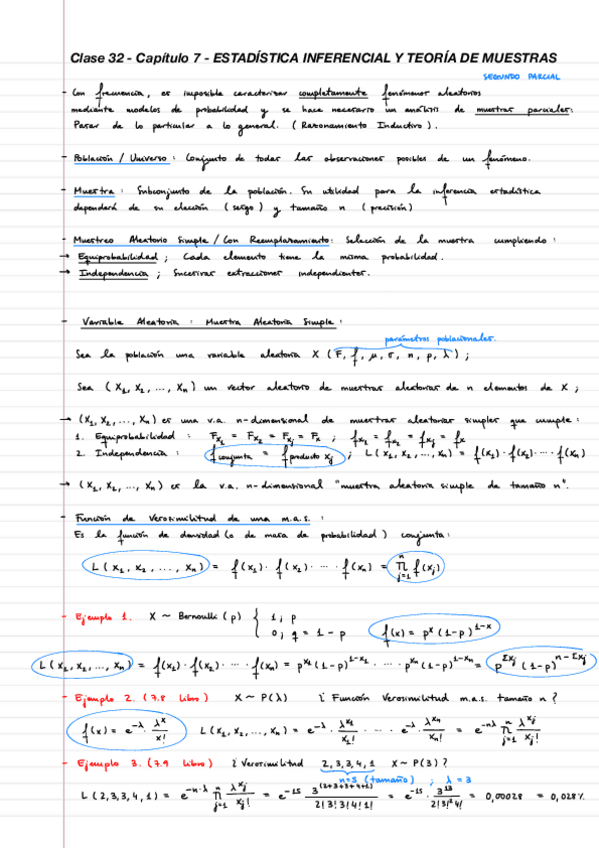 Clase 32 - Capítulo 7 - ESTADÍSTICA INFERENCIAL Y TEORÍA DE MUESTRAS
SEGUNDO PARCIAL
- Con frecuencia, es imposible caracterizar completamente fenómenos aleatorios
mediante modelos de probabilidad y se hace necesario un análisis de muestras parciales:
Pasar de lo particular a lo general. (Razonamiento Inductivo).
- Población / Universo: Conjunto de todas las observaciones posibles de un fenómeno.
- Muestra: Subconjunto de la población. Su utilidad para la inferencia estadística
dependerá de su elección (sesgo) y tamaño n (precisión)
- Muestreo Aleatorio Simple / Con Reemplazamiento: Selección de la muestra cumpliendo:
→ Equiprobabilidad; Cada elemento tiene la misma probabilidad.
→ Independencia; Sucesivas extracciones independientes.
- Variable Aleatoria: Muestra Aleatoria Simple:
parámetros poblacionales.
Sea la población una variable aleatoria X (F, f, μ, σ, n, p, λ);
Sea (X₁, X₂, ..., Xₙ) un vector aleatorio de muestras aleatorias de n elementos de X;
→ (X₁, X₂, ..., Xₙ) es una v.a. n-dimensional de muestras aleatorias simples que cumple:
1. Equiprobabilidad: Fx₁ = Fx₂ = Fxⱼ = Fx ; fx₁ = fx₂ = fxⱼ = fx
2. Independencia: f conjunta = f producto xⱼ ; L(X₁, X₂, ..., Xₙ) = f(x₁)·f(x₂)·...·f(xₙ)
→ (X₁, X₂, ..., Xₙ) es la v.a. n-dimensional "muestra aleatoria simple de tamaño n".
- Función de Verosimilitud de una m.a.s.:
Es la función de densidad (o de masa de probabilidad) conjunta:
L(X₁, X₂, ..., Xₙ) = f(x₁)·f(x₂)·...·f(xₙ) = ∏ⱼ₌₁ⁿ f(xⱼ)
- Ejemplo 1. X ~ Bernoulli (p) { 1; p
0; q = 1 - p f(x) = pˣ (1-p)¹⁻ˣ
L(X₁, X₂, ..., Xₙ) = f(x₁)·f(x₂)·...·f(xₙ) = p^x₁ (1-p)^(1-x₁) · ... · p^xₙ (1-p)^(1-xₙ) = p^(Σxⱼ) (1-p)^(n-Σxⱼ)
- Ejemplo 2. (7.8 libro) X ~ P(λ) ¿Función Verosimilitud m.a.s. tamaño n?
f(x) = e^(-λ) · λˣ/x! L(X₁, X₂, ..., Xₙ) = e^(-λ) · λ^x₁/x₁! · ... · e^(-λ) · λ^xₙ/xₙ! = e^(-nλ) ∏ⱼ₌₁ⁿ λ^xⱼ/xⱼ!
- Ejemplo 3. (7.9 libro) ¿Verosimilitud 2, 3, 3, 4, 1 X ~ P(3)?
n=5 (tamaño) ; λ = 3
L(2,3,3,4,1) = e^(-n·λ) ∏ⱼ₌₁ⁿ λ^xⱼ/xⱼ! = e^(-15) 3^(2+3+3+4+1)/2!3!3!4!1! = e^(-15) · 3¹³/2!3!²4! = 0,00028 = 0,028%